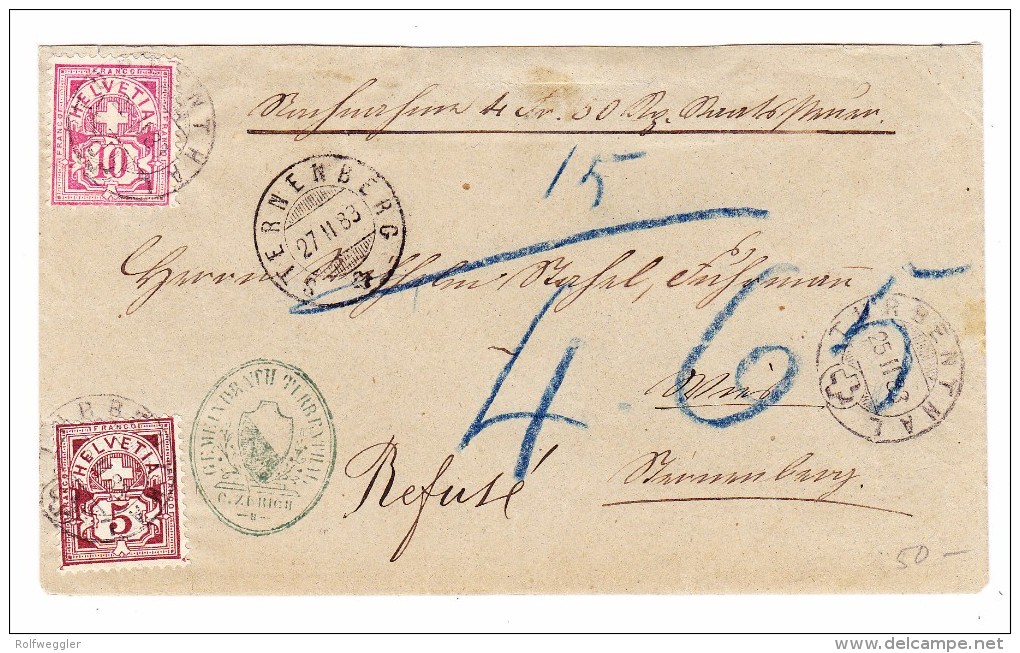 FRANCO
HELVETIA
FRANCO
10
TURBENTHAL
Nachnahme 4 Fr. 50 Rp. Staatssteuer.
15
STERNENBERG
27 II 83
Herrn
Stahel, Fuhrmann
4.65
TURBENTHAL
25 II 83
GEMEINDRATH TURBENTHAL
C. ZÜRICH
FRANCO
HELVETIA
FRANCO
5
Refusé
Sternenberg.
50 –
Rolfweggler
delcampe.net